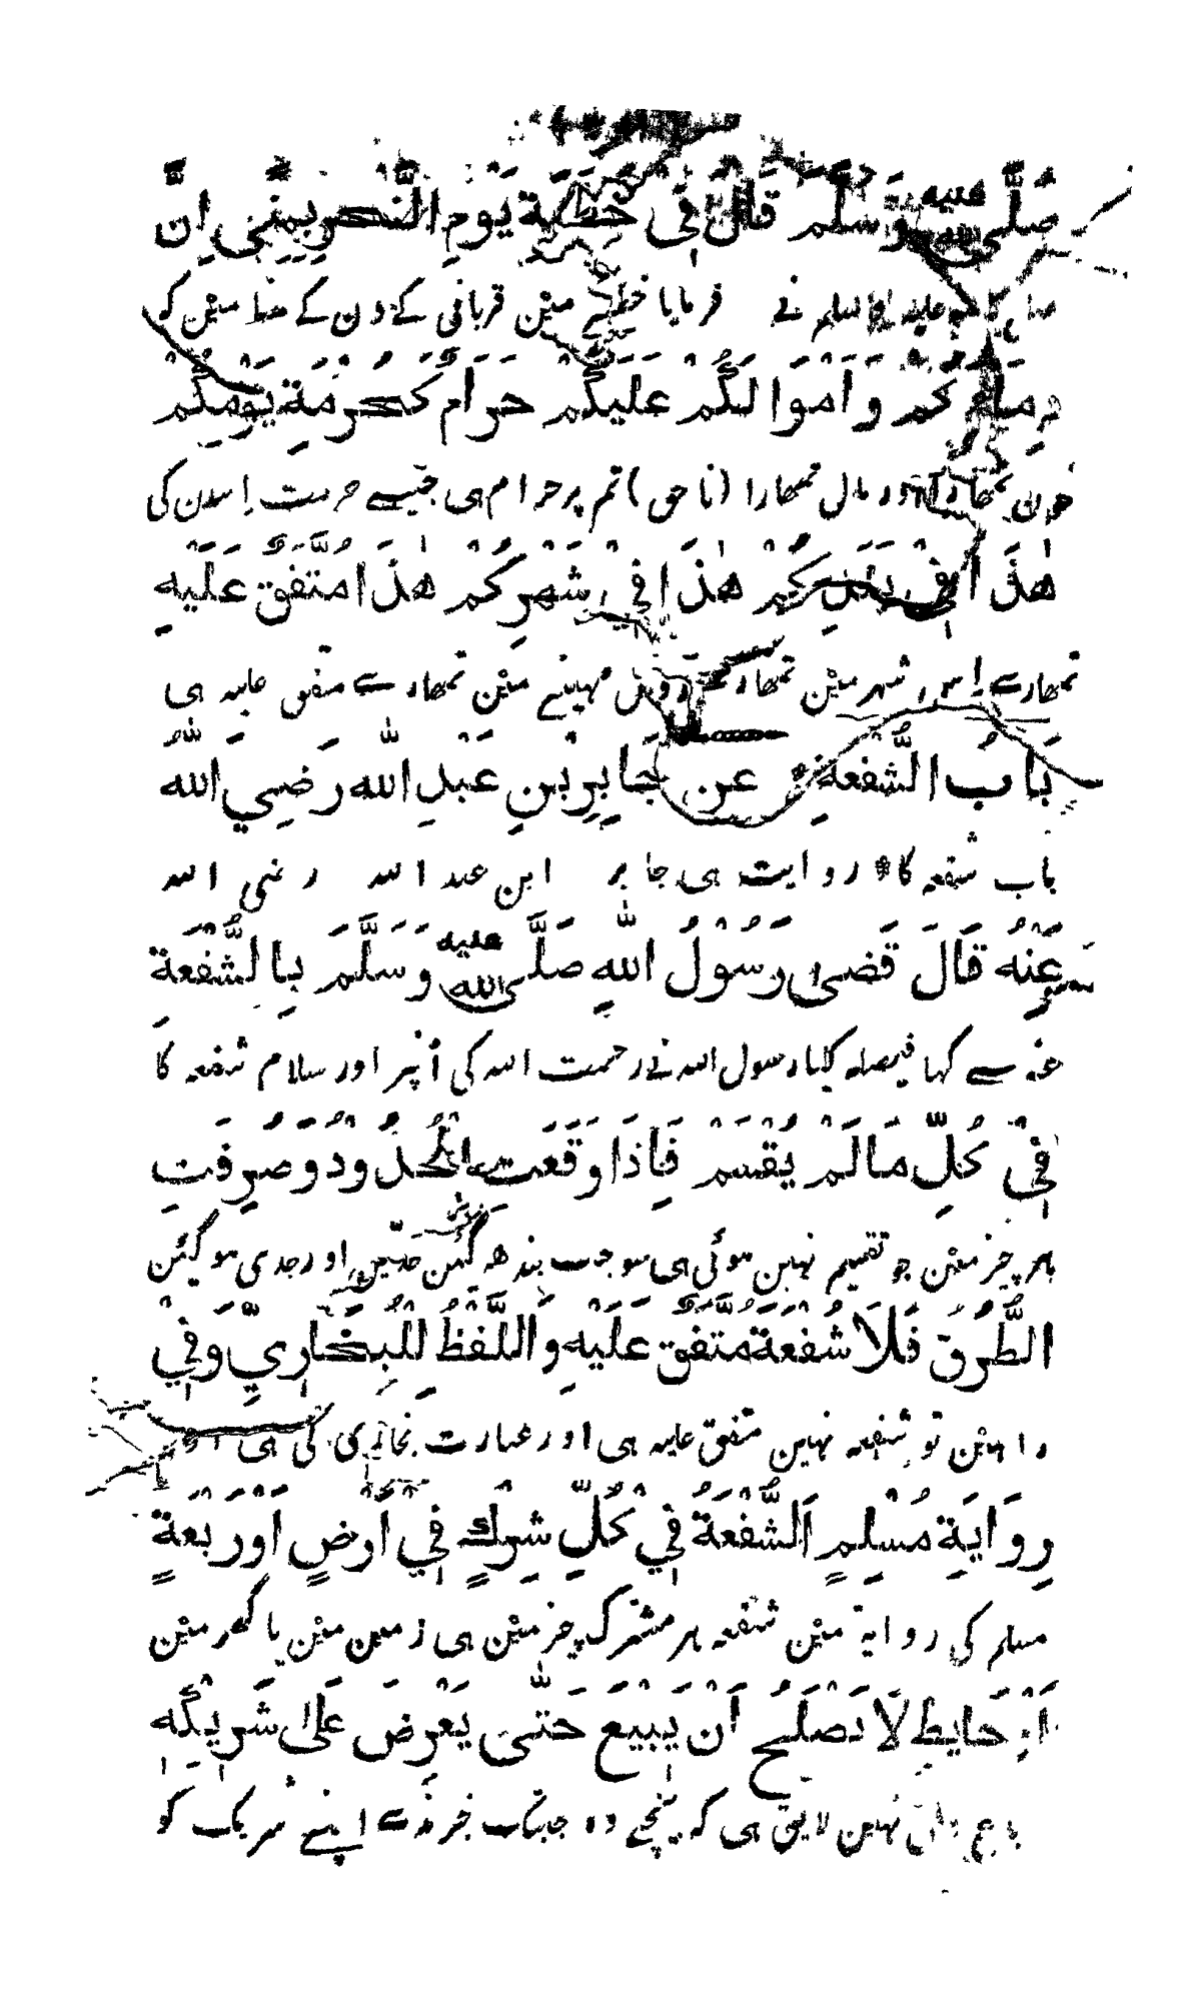 صَلَّى اللهُ عليه وَسَلَّمَ قَالَ فِي خُطْبَةِ يَوْمِ النَّحْرِ بِمِنًى اِنَّ
صلی الله علیه والسلم نے فرمایا خطبے مین قربانی کے دن کے منا مین کہ
دِمَاءَكُمْ وَاَمْوَالَكُمْ عَلَيْكُمْ حَرَامٌ كَحُرْمَةِ يَوْمِكُمْ
خون تمھارا اور مال تمھارا (ناحق) تم پر حرام ہی جیسے حرمت اِسدن کی
هٰذَا فِيْ بَلَدِكُمْ هٰذَا فِيْ شَهْرِكُمْ هٰذَا مُتَّفَقٌ عَلَيْهِ
تمھارے اِس شہر مین تمھارے مہینے مین تمھارے متفق علیہ ہی
بَابُ الشُّفْعَةِ عَن جَابِرِ بْنِ عَبْدِ اللّٰه رَضِيَ اللّٰهُ
باب شفعہ کا * روایت ہی جابر ابن عبد الله رضی الله
عَنْهُ قَالَ قَضٰى رَسُوْلُ اللّٰهِ صَلَّى الله عليه وَسَلَّمَ بِالشُّفْعَةِ
عنہ سے کہا فیصلہ کیا رسول الله نے رحمت الله کی اُنپر اور سلام شفعہ کا
فِيْ كُلِّ مَا لَمْ يُقْسَمْ فَاِذَا وَقَعَتِ الْحُدُوْدُ وَصُرِفَتِ
ہر چیز مین جو تقسیم نہین ہوئی ہی سو جب بندھ گئین حدّین اور جدی ہو گیئن
الطُّرُقُ فَلَا شُفْعَةَ مُتَّفَقٌ عَلَيْهِ وَاللَّفْظُ لِلْبُخَارِيِّ وَفِيْ
راہین تو شفعہ نہین متفق علیہ ہی اور عبارت بخاری کی ہی اور
رِوَايَةِ مُسْلِمٍ اَلشُّفْعَةُ فِيْ كُلِّ شِرْكٍ فِيْ اَرْضٍ اَوْ رَبْعَةٍ
مسلم کی روایة مین شفعہ ہر مشترک چیز مین ہی زمین مین یا گھر مین
اَوْ حَايِطٍ لَا تَصْلُحُ اَنْ يَبِيْعَ حَتّٰى يَعْرِضَ عَلٰى شَرِيْكِهِ
یا نہین لایق ہی کہ بیچے وہ جبتک خبر ندے اپنے شریک کو